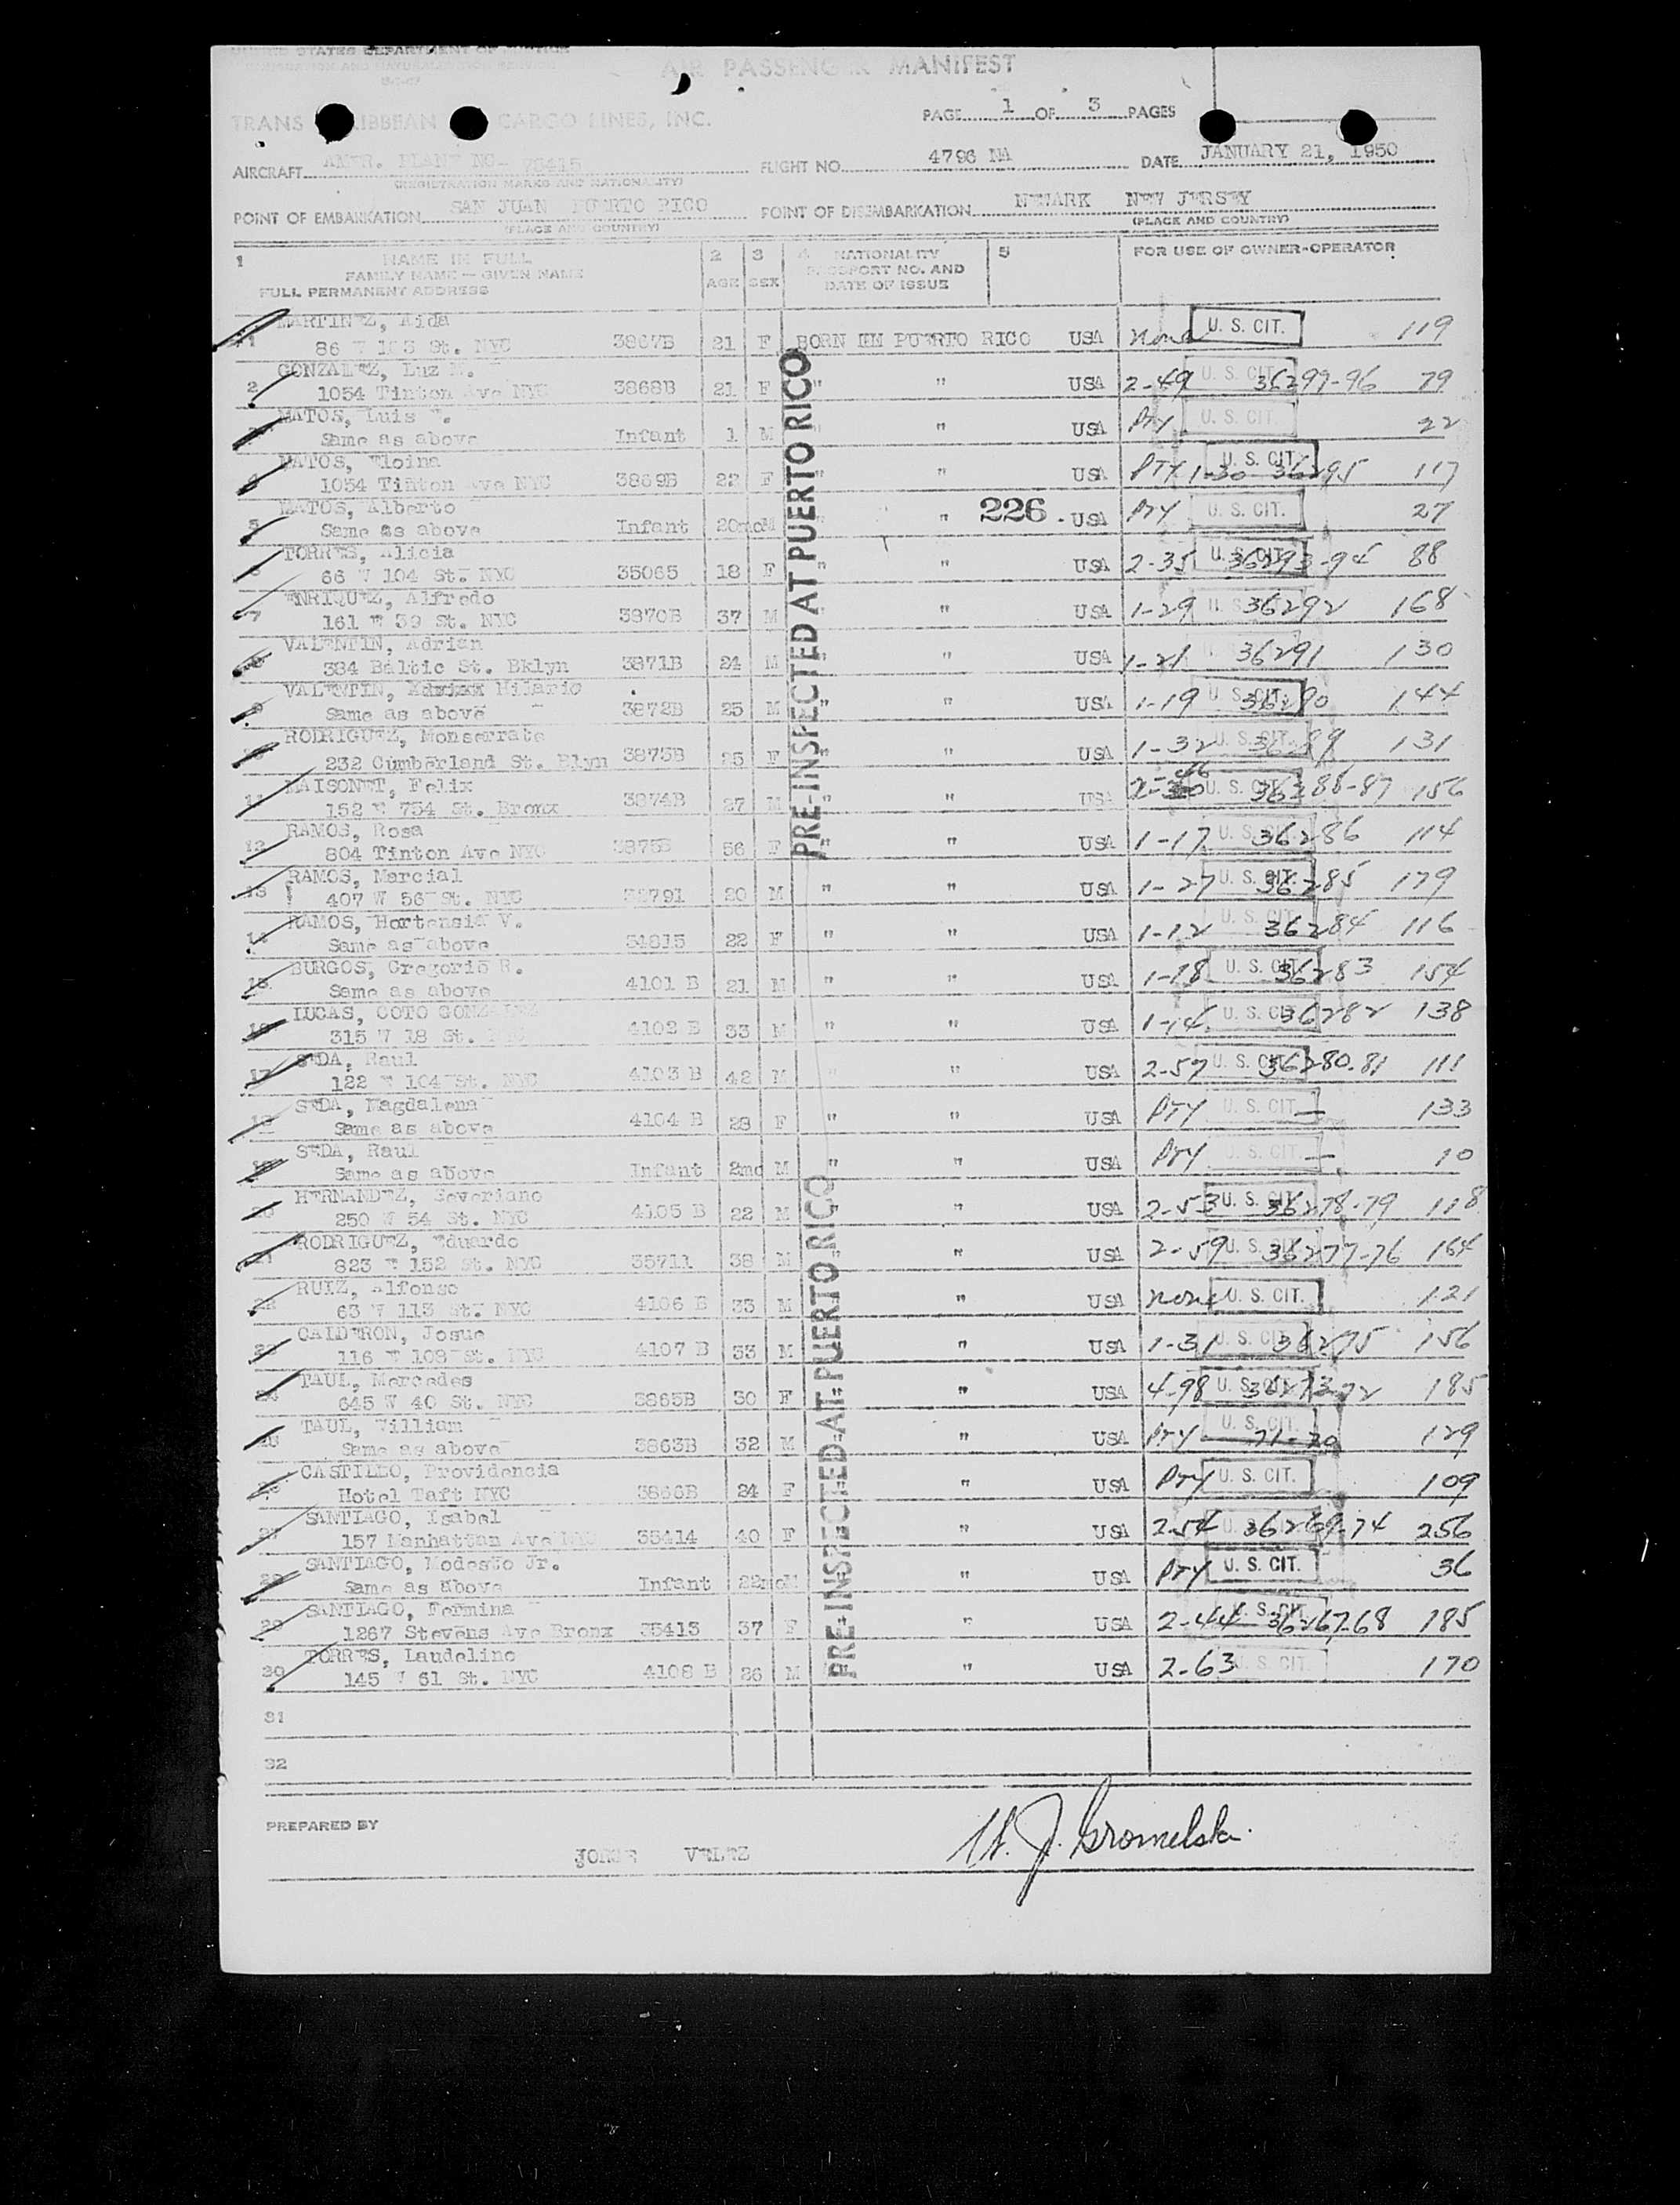 UNITED STATES DEPARTMENT OF JUSTICE
AIR PASSENGER MANIFEST
TRANS CARIBBEAN CARGO LINES, INC.
PAGE 1 OF 3 PAGES
AIRCRAFT 78415 FLIGHT NO. 4796 NA DATE JANUARY 21, 1950
(REGISTRATION MARKS AND NATIONALITY)
POINT OF EMBARKATION SAN JUAN PUERTO RICO POINT OF DISEMBARKATION NEWARK NEW JERSEY
(PLACE AND COUNTRY) (PLACE AND COUNTRY)
1 NAME IN FULL 2 3 4 NATIONALITY 5 FOR USE OF OWNER-OPERATOR
FAMILY NAME — GIVEN NAME AGE SEX PASSPORT NO. AND
FULL PERMANENT ADDRESS DATE OF ISSUE
MARTINEZ, Aida
1 86 W 103 St. NYC 3867B 21 F BORN IN PUERTO RICO USA none U. S. CIT. 119
GONZALEZ, Luz M.
2 1054 Tinton Ave NYC 3868B 21 F " " USA 2-49 U. S. CIT. 36299-96 79
MATOS, Luis
Same as above Infant 1 M " " USA Pty U. S. CIT. 22
MATOS, Eloina
4 1054 Tinton Ave NYC 3869B 22 F " USA PTY 1-30 U. S. CIT. 36295 117
MATOS, Alberto
5 Same as above Infant 20mo M " 226 USA Pty U. S. CIT. 27
TORRES, Alicia
6 66 W 104 St. NYC 35065 18 F " USA 2-35 U. S. CIT. 36293-94 88
ENRIQUEZ, Alfredo
7 161 W 39 St. NYC 3870B 37 M " USA 1-29 36292 168
VALENTIN, Adrian
8 384 Baltic St. Bklyn 3871B 24 M " USA 1-21 36291 130
VALENTIN, Hilario
9 Same as above 3872B 25 M " USA 1-19 U. S. CIT. 36290 144
RODRIGUEZ, Monserrate
10 232 Cumberland St. Blyn 3873B 25 F " USA 1-32 U. S. CIT. 36289 131
MAISONET, Felix
11 152 E 754 St. Bronx 3874B 27 M " USA 2-46 U. S. CIT. 36288-87 156
RAMOS, Rosa
12 804 Tinton Ave NYC 3875B 56 F " " USA 1-17 U. S. CIT. 36286 114
RAMOS, Marcial
13 407 W 56 St. NYC 20 M " " USA 1-27 U. S. CIT. 36285 179
RAMOS, Hortensia V.
14 Same as above 34815 22 F " " USA 1-12 U. S. CIT. 36284 116
BURGOS, Gregorio R.
15 Same as above 4101 B 21 M " " USA 1-18 U. S. CIT. 36283 154
LUCAS, COTO GONZALEZ
16 315 W 18 St. NYC 4102 B 33 M " " USA 1-14 U. S. CIT. 36282 138
SEDA, Raul
17 122 E 104 St. NYC 4103 B 42 M " " USA 2-57 U. S. CIT. 36280-81 111
SEDA, Magdalena
18 Same as above 4104 B 28 F " " USA PTY U. S. CIT. — 133
SEDA, Raul
19 Same as above Infant 2mo M " " USA PTY U. S. CIT. — 10
HERNANDEZ, Severiano
20 250 W 54 St. NYC 4105 B 22 M " USA 2-53 U. S. CIT. 36278-79 118
RODRIGUEZ, Eduardo
21 823 E 152 St. NYC 35711 38 M " USA 2-59 U. S. CIT. 36277-76 164
RUIZ, Alfonso
22 63 W 113 St. NYC 4106 B 33 M " USA none U. S. CIT. 121
CALDERON, Josue
23 116 E 108 St. NYC 4107 B 33 M " USA 1-31 U. S. CIT. 36275 156
TAUL, Mercedes
24 645 W 40 St. NYC 3865B 30 F " USA 4-98 U. S. CIT. 36273-72 185
TAUL, William
25 Same as above 3863B 32 M " USA Pty U. S. CIT. 71-70 129
CASTILLO, Providencia
Hotel Taft NYC 3866B 24 F " USA Pty U. S. CIT. 109
SANTIAGO, Isabel
27 157 Manhattan Ave NYC 35414 40 F " USA 2-54 36269-74 256
SANTIAGO, Modesto Jr.
28 Same as above Infant 22mo M " USA Pty U. S. CIT. 36
SANTIAGO, Fermina
29 1267 Stevens Ave Bronx 35413 37 F " USA 2-44 U. S. CIT. 36267-68 185
TORRES, Laudelino
30 145 W 61 St. NYC 4108 B 26 M " USA 2-63 U. S. CIT. 170
31
32
PRE-INSPECTED AT PUERTO RICO
PRE-INSPECTED AT PUERTO RICO
PREPARED BY
JORGE VELEZ